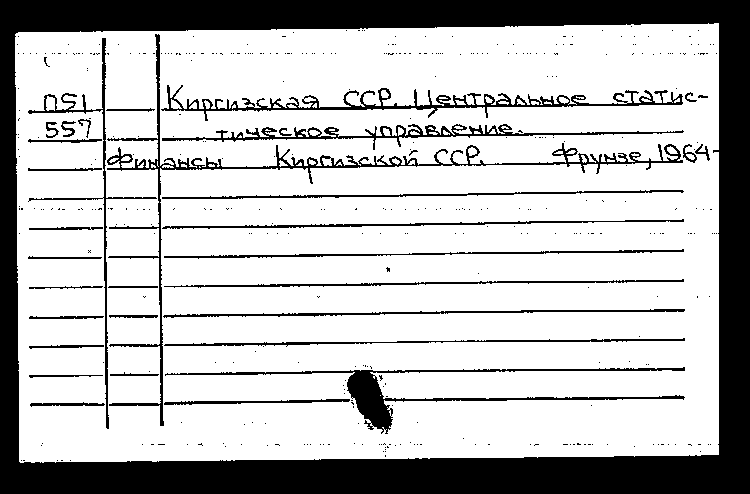 П51 Киргизская ССР. Центральное статис-
557 тическое управление.
Финансы Киргизской ССР. Фрунзе, 1964-